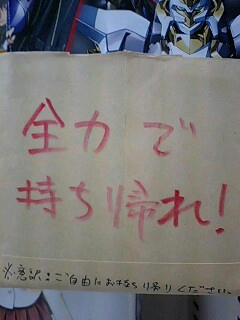 全力で
持ち帰れ!
※意訳:ご自由にお持ち帰りください。